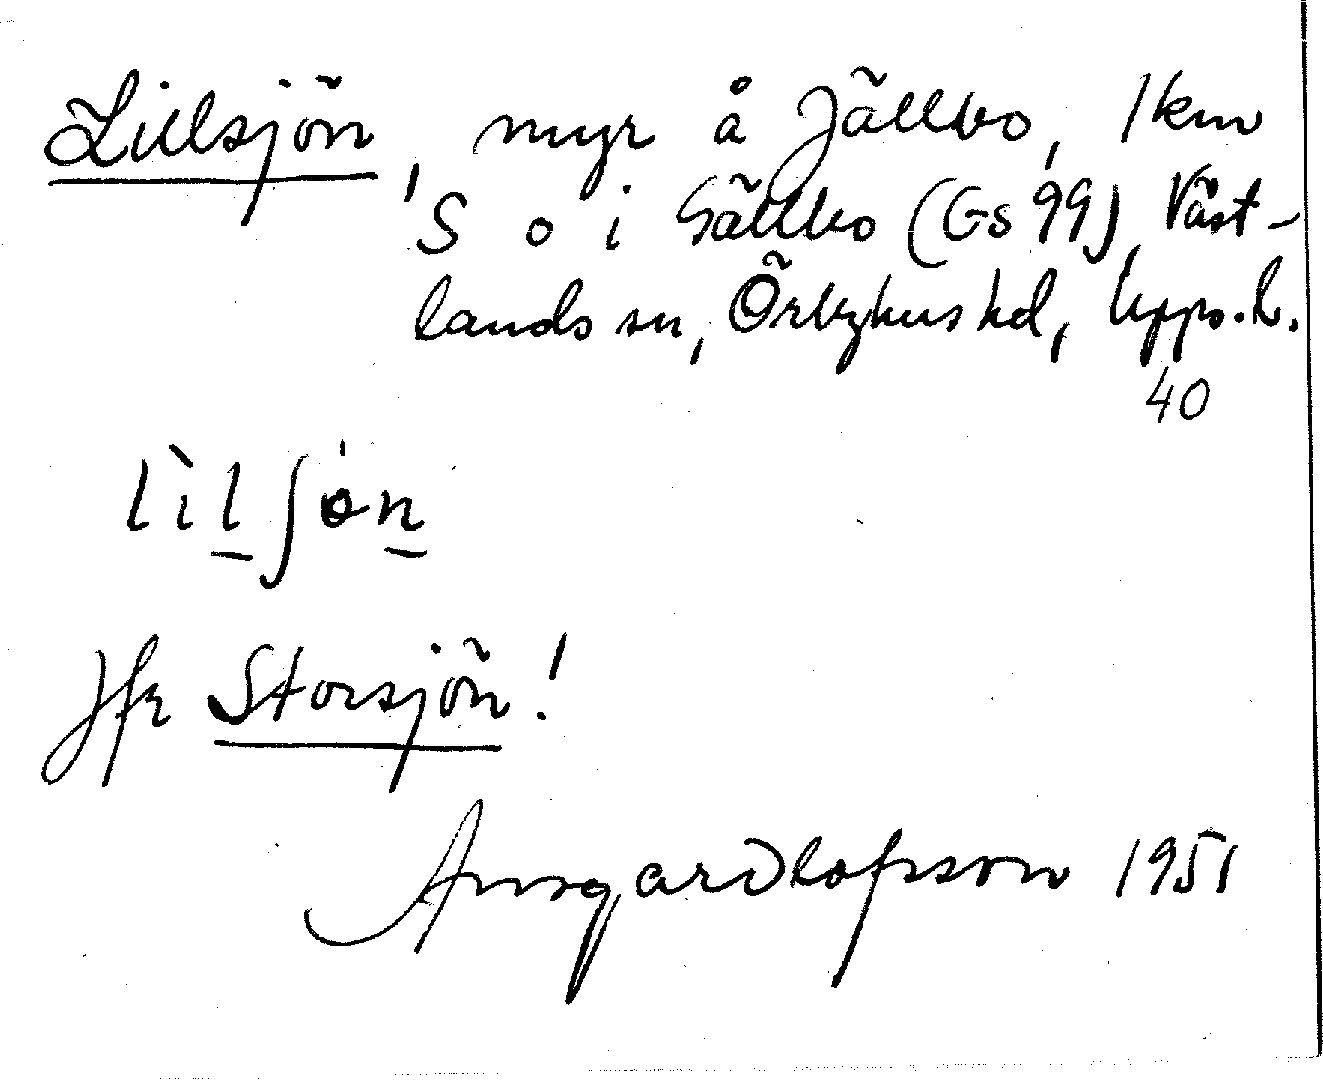 Lillsjön, myr å Jällbo, 1 km
S o i Sällbo (Gs 99), Väst-
lands sn, Örbyhus hd, Upps. l.
40
lìlʃø̍n
Jfr Storsjön!
Ansgar Olofsson 1951